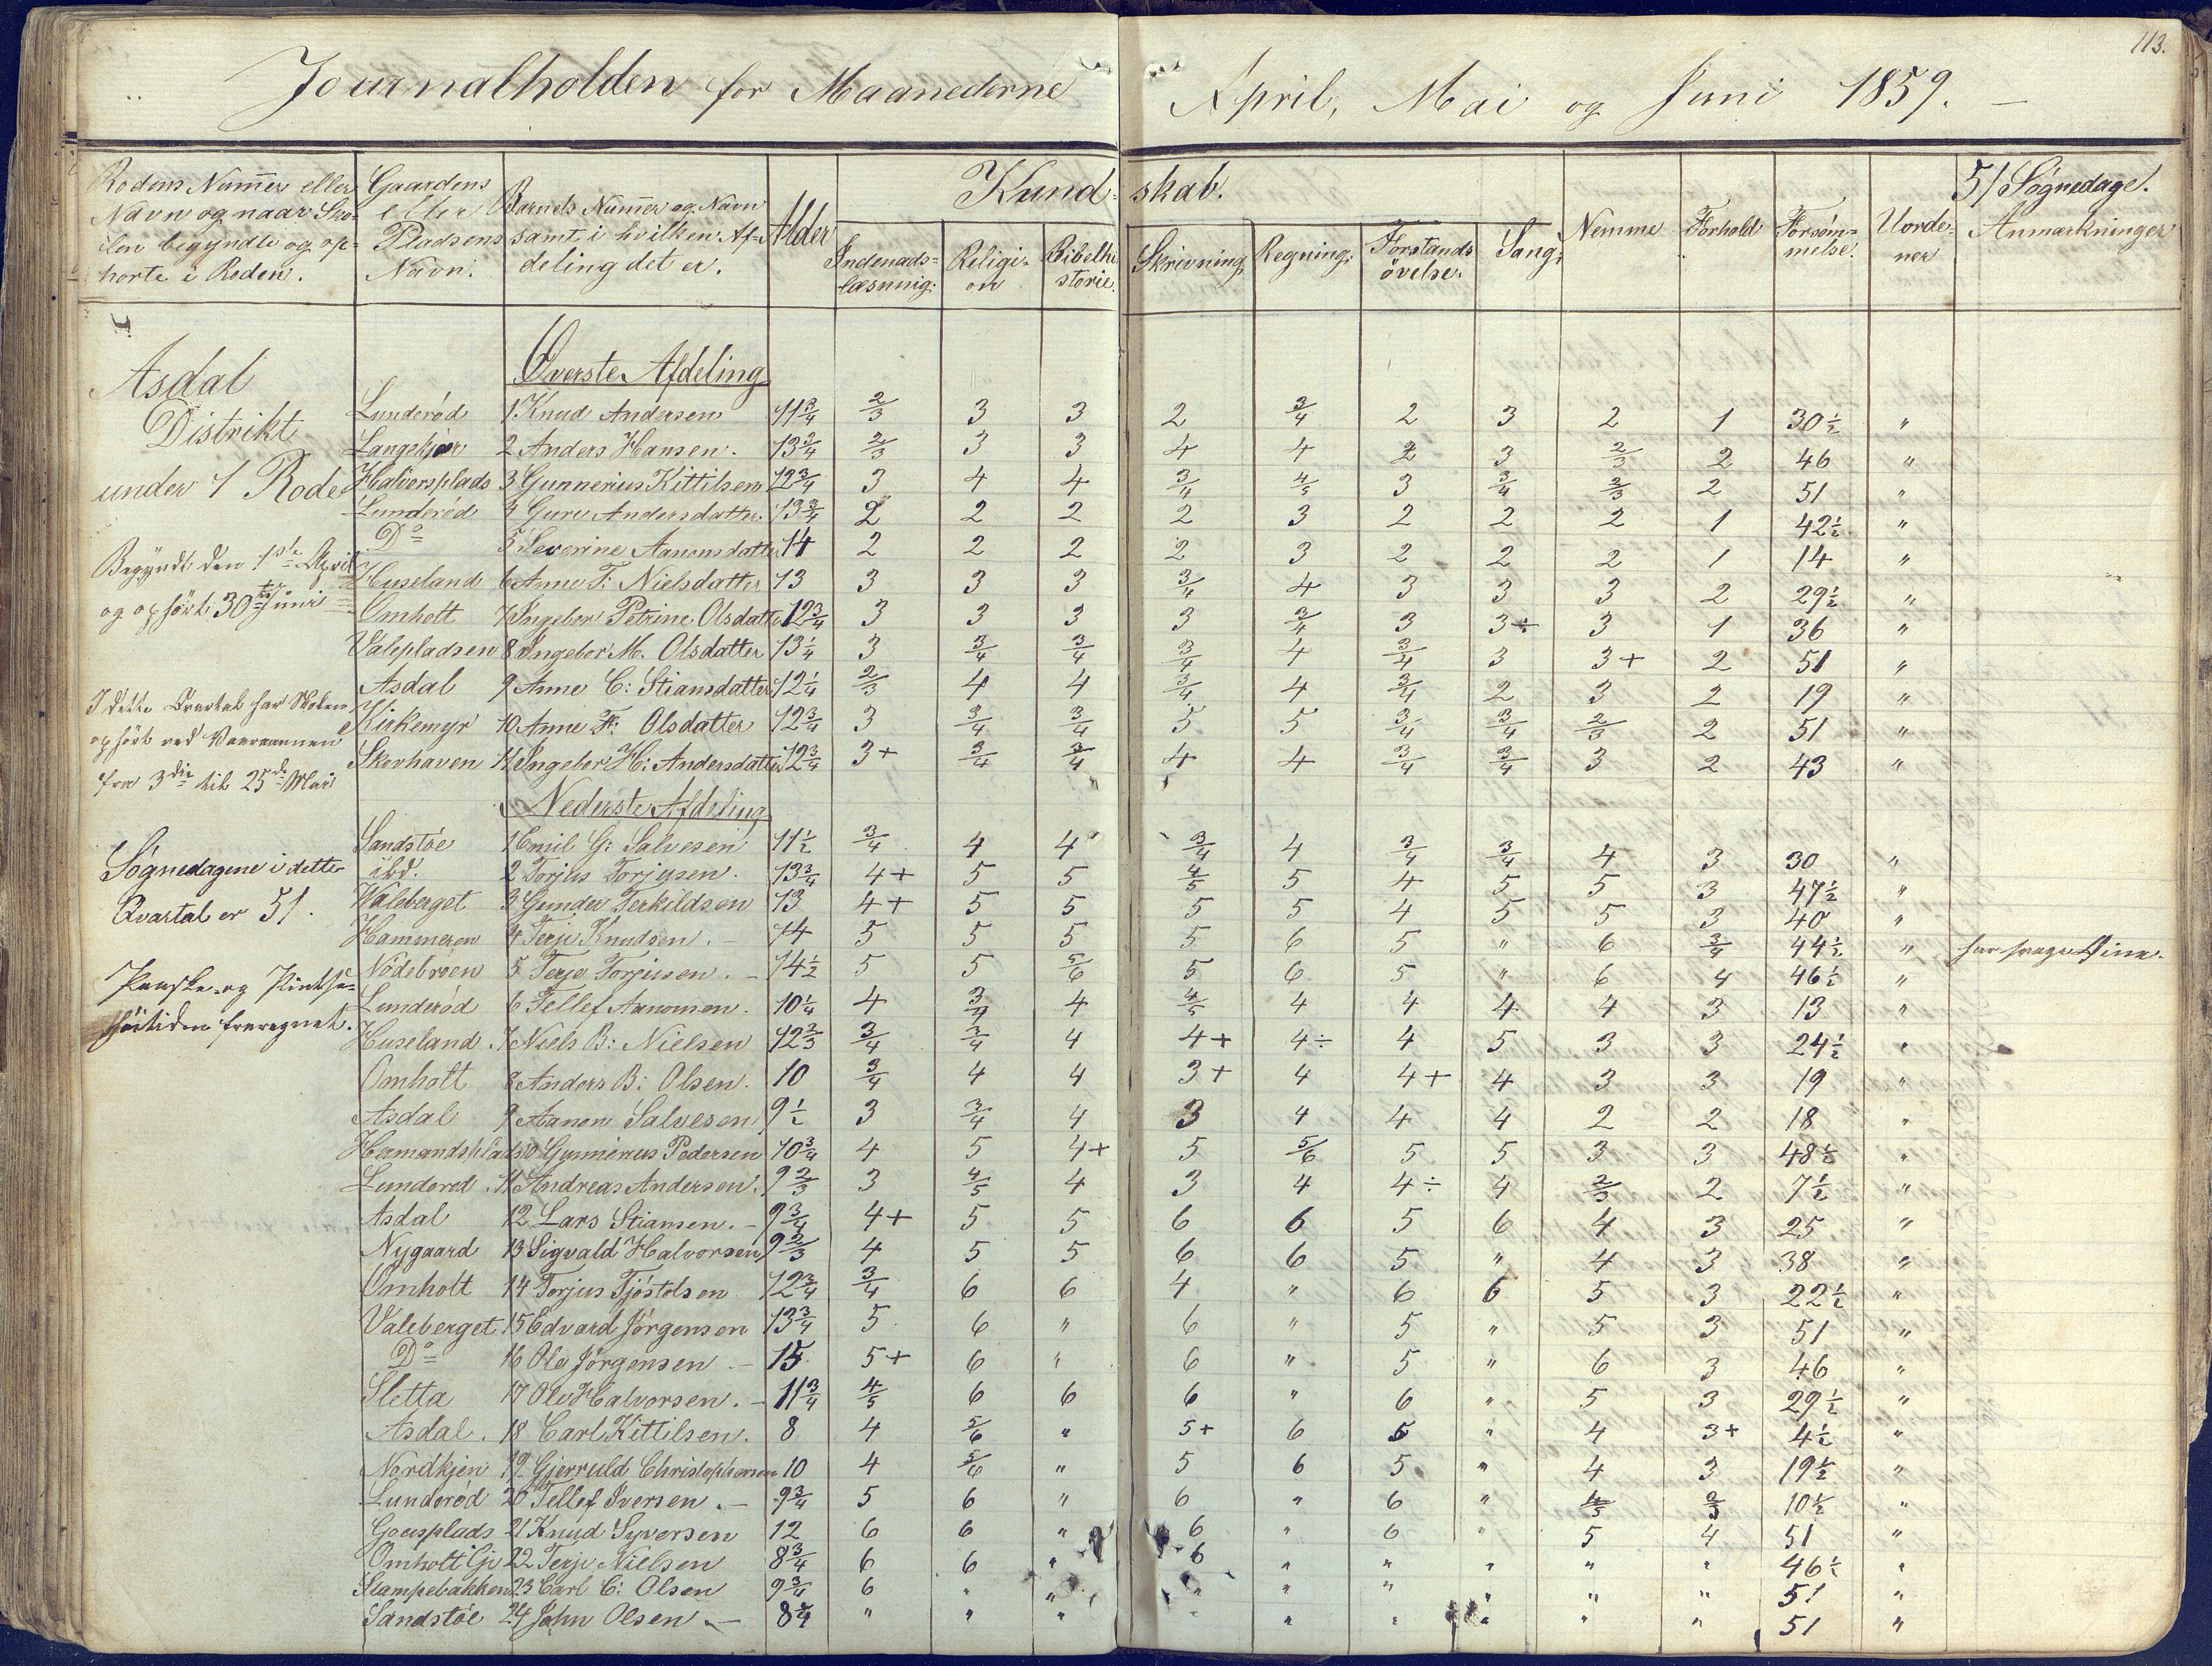 113.
Journalholden for Maanederne April, Mai og Juni 1859.
Rodens Numer eller Navn og naar Skolen begyndte og ophørte i Roden. | Gaardens eller Pladsens Navn. | Barnets Numer og Navn samt i hvilken Afdeling det er. | Alder | Kundskab. | Nemme | Forhold | Forsömmelse. | Uordener | 51 Søgnedage. Anmærkninger
Indenadslæsning. | Religion | Bibelhistorie. | Skrivning. | Regning. | Forstandsövelse. | Sang.
I
Asdal
Distrikt
under 1 Rode
Begyndt den 1ste April
og ophört 30te Juni
I dette Qvartal har Skolen
ophört ved Vaaraannen
fra 3die til 25de Mai
Søgnedagene i dette
Qvartal er 51.
Paaske- og Pintse-
høitiden fraregnet.
Øverste Afdeling
Lunderöd 1 Knud Andersen 11 3/4 2/3 3 3 2 3/4 2 3 2 1 30 1/2 "
Langekjær 2 Anders Hansen. 13 3/4 2/3 3 3 4 4 2 3 2/3 2 46 "
Halvorsplads 3 Gunnerius Kittilsen 12 3/4 3 4 4 3/4 4/5 3 3/4 2/3 2 51 "
Lunderöd 4 Guro Andersdatter. 13 3/4 2 2 2 2 3 2 2 2 1 42 1/2 "
Do 5 Severine Aanonsdatter 14 2 2 2 2 3 2 2 2 1 14 "
Huseland 6 Anne T: Nielsdatter 13 3 3 3 3/4 4 3 3 3 2 29 1/2 "
Omholt 7 Ingebor Petrine Olsdatter 12 3/4 3 3 3 3 3/4 3 3÷ 3 1 36 "
Valepladsen 8 Ingebor M. Olsdatter 13 1/4 3 3/4 3/4 3/4 4 3/4 3 3+ 2 51 "
Asdal 9 Anne C: Stiansdatter 12 1/4 2/3 4 4 3/4 4 3/4 2 3 2 19 "
Kirkemyr 10 Anne F: Olsdatter 12 3/4 3 3/4 3/4 5 5 3/4 3/4 2/3 2 51 "
Skovhaven 11 Ingebor H: Andersdatter 12 3/4 3+ 3/4 3/4 4 4 3/4 3/4 3 2 43 "
Nederste Afdeling
Sandstøe 1 Emil G: Salvesen 11 1/2 3/4 4 4 3/4 4 3/4 3/4 4 3 30 "
ibd. 2 Torjus Torjusen. 13 3/4 4+ 5 5 4/5 5 4 5 5 3 47 1/2 "
Valeberget 3 Gunder Terkildsen 13 4+ 5 5 5 5 4 5 5 3 40 "
Hammeren 4 Terje Knudsen. – 14 5 5 5 5 6 5 " 6 3/4 44 1/2 "
Nödebroen 5 Terje Torjusen. – 14 1/2 5 5 5/6 5 6 5 " 6 4 46 1/2 "
Lunderöd 6 Tellef Aanonsen. 10 1/4 4 3/4 4 4/5 4 4 4 4 3 13 "
Huseland. 7 Niels B: Nielsen 12 2/3 3/4 3/4 4 4+ 4÷ 4 5 3 3 24 1/2 "
Omholt 8 Anders B: Olsen. 10 3/4 4 4 3+ 4 4+ 4 3 3 19 "
Asdal 9 Aanon Salvesen 9 1/2 3 3/4 4 3 4 4 4 2 2 18 "
Hermandsplads 10 Gunnerius Pedersen 10 3/4 4 5 4+ 5 5/6 5 5 3 3 48 1/2 "
Lunderød. 11 Andreas Andersen. 9 2/3 3 4/5 4 3 4 4÷ 4 2/3 2 7 1/2 "
Asdal 12 Lars Stiansen. – 9 3/4 4+ 5 5 6 6 5 6 4 3 25 "
Nygaard 13 Sigvald Halvorsen 9 2/3 4 5 5 6 6 5 " 4 3 38 "
Omholt 14 Torjus Tjöstolsen 12 3/4 3/4 6 6 4 " 6 6 5 3 22 1/2 "
Valeberget 15 Edvard Jörgensen 13 3/4 5 6 " 6 " 5 " 5 3 51 "
Do 16 Ole Jörgensen. – 15 5+ 6 " 6 " 5 " 6 3 46 "
Sletta 17 Ole Halvorsen. – 11 3/4 4/5 6 6 6 " 6 " 5 3 29 1/2 "
Asdal. 18 Carl Kittilsen. 8 4 5/6 " 5+ 6 5 " 4 3+ 4 1/2 "
Nordkjen 19 Gjerruld Christophersen 10 4 5/6 " 5 6 5 " 4 3 19 1/2 "
Lunderöd 20 Tellef Iversen. – 9 3/4 5 6 " 6 " 6 " 4/5 2/3 10 1/2 "
21 Knud Syversen 12 6 6 " 6 " 6 " 5 4 51 "
Omholt 22 Terje Nielsen 8 3/4 6 6 " 6 " " " " " 46 1/2 "
Stampebakken 23 Carl C: Olsen 9 3/4 6 " " " " " " " " 51 "
Sandstøe 24 John Olsen. – 8 1/4 " " " " " " " " " 51 "